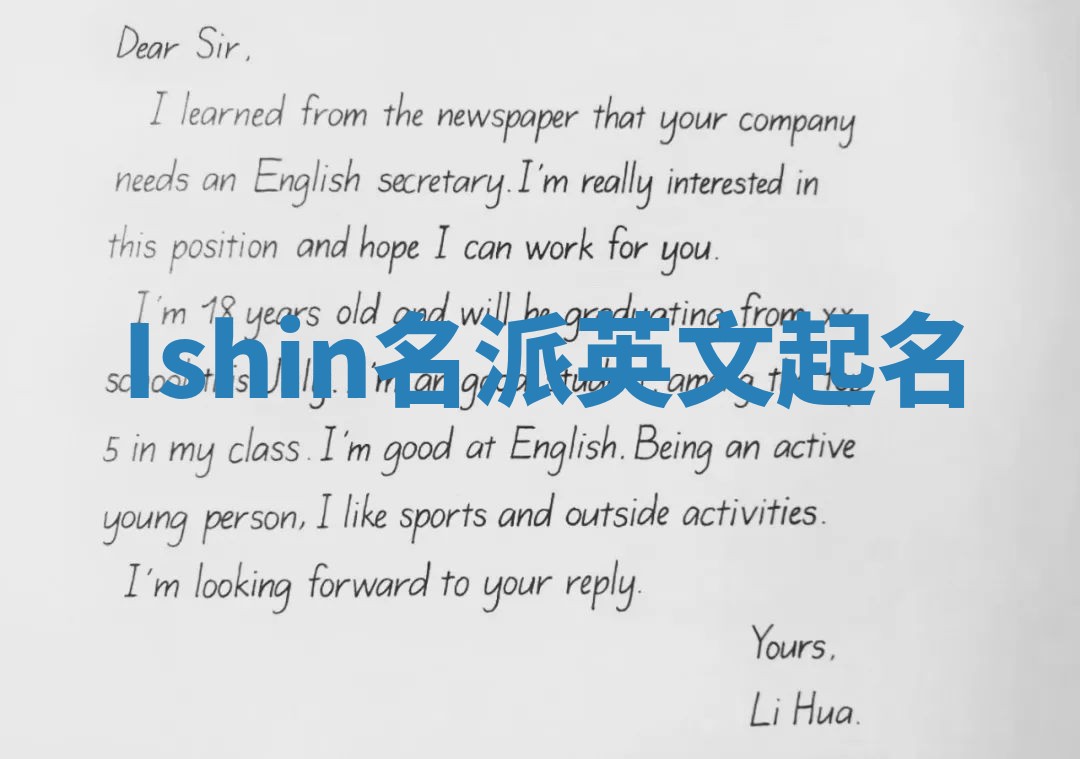 Dear Sir,
I learned from the newspaper that your company
needs an English secretary. I'm really interested in
this position and hope I can work for you.
I'm 18 years old and will be graduating from xx
Ishin名派英文起名
school this July. I'm an good student, among the top
5 in my class. I'm good at English. Being an active
young person, I like sports and outside activities.
I'm looking forward to your reply.
Yours,
Li Hua.